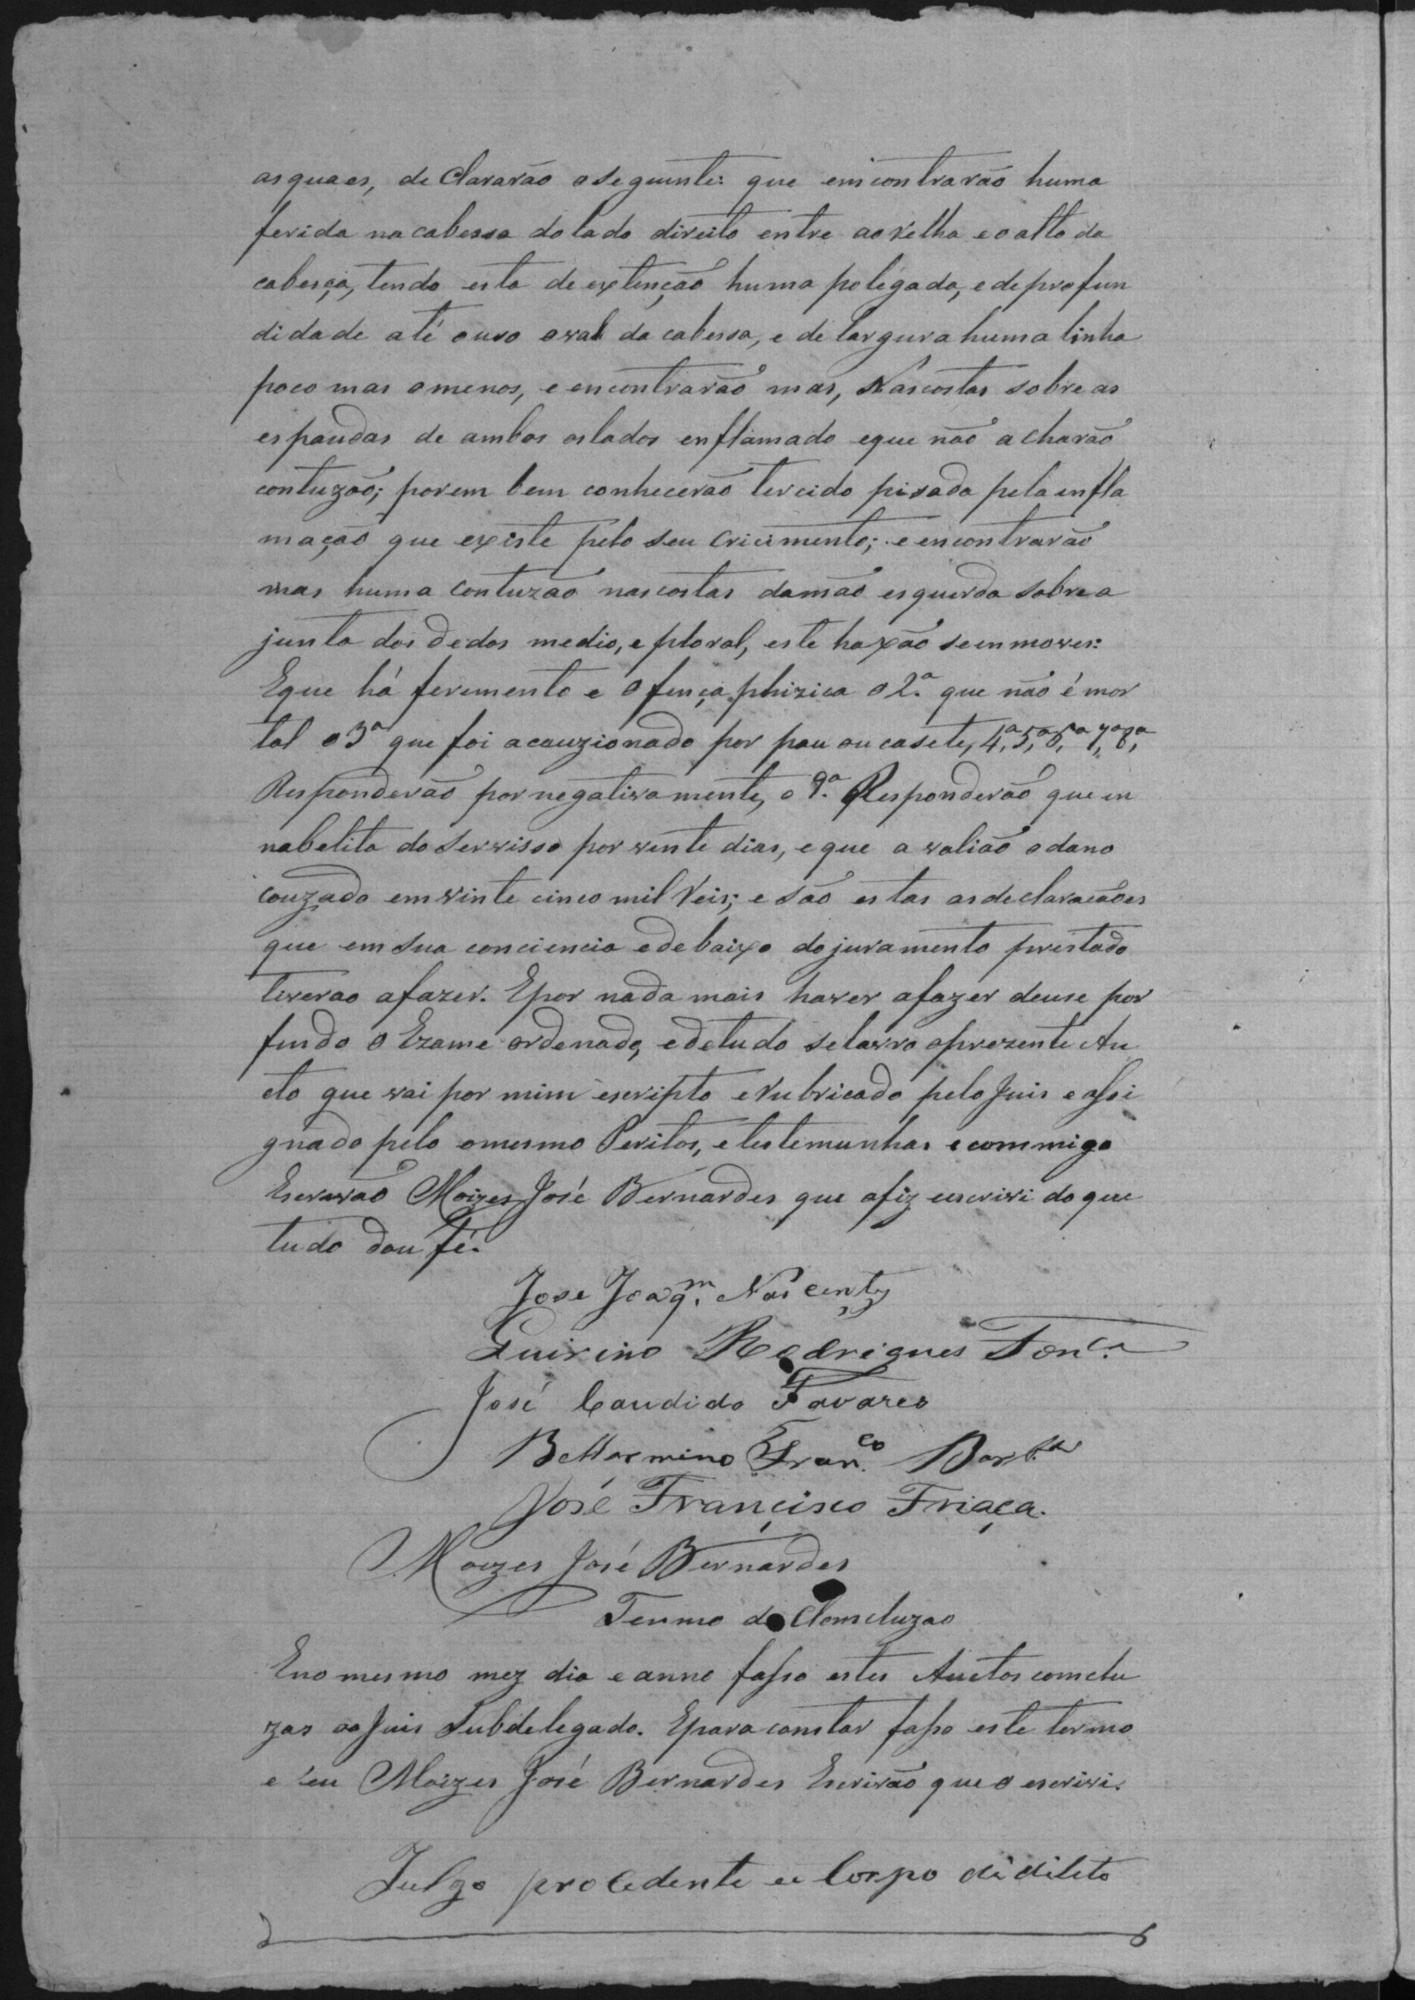 asquaes, de Clararão o seguinte: que emcontrarão huma
ferida na cabessa do lado direito entre a orelha e o alto da
cabesça, tendo esta de extenção huma polegada, e de profun
didade até o uso oval da cabessa, e de largura huma linha
poco mas o menos, e encontrarão mas, Nas costas sobre as
espaudas de ambos os lados enflamado e que não acharão
contuzão; porem bem conhecerão ter cido pizada pela infla
mação que existe pelo seu Cricimento; e encontrarão
mas huma Contuzão nas costas da mão esquerda sobre a
junta dos dedos medio, e ploral, este haxão se em mover:
E que há ferimento e Ofença phizica o 2.ª que não é mor
tal o 3ª que foi acauzionado por pau ou casete, 4ª, 5ª, 6ª, 7ª, 8ª,
Responderão por negativamente, o 9.ª Responderão que en
nabelita do Servisso por vente dias, e que avalião o dano
couzado em vinte cinco mil Reis; e são estas as declaracãoes
que em sua conciencia e debaixo do juramento prestado
teverao a fazer. E por nada mais haver a fazer deuse por
findo o Ezame ordenado, e de tudo se lavro o prezente Au
cto que vai por mim escripto e rubricado pelo Juis e assi
gnado pelo o mesmo Peritos, e testemunhas e commigo
Escrivão Moizes José Bernardes que a fiz escrivi do que
tudo dou fé.
Jose Joaqm. Nascentz
Quirino Rodrigues Fonca
José Candido Tavares
Bellarmino Franco. Barbza
José Francisco Friaça.
Moizes José Bernardes
Termo de Clomcluzao
E no mesmo mez dia e anno fasso estes Auctos comclu
zos ao Juis Subdelegado. E para constar fasso este termo
e eu Moizes José Bernardes Escrivão que o escrivi.
Julgo procedente ee Corpo di dilito